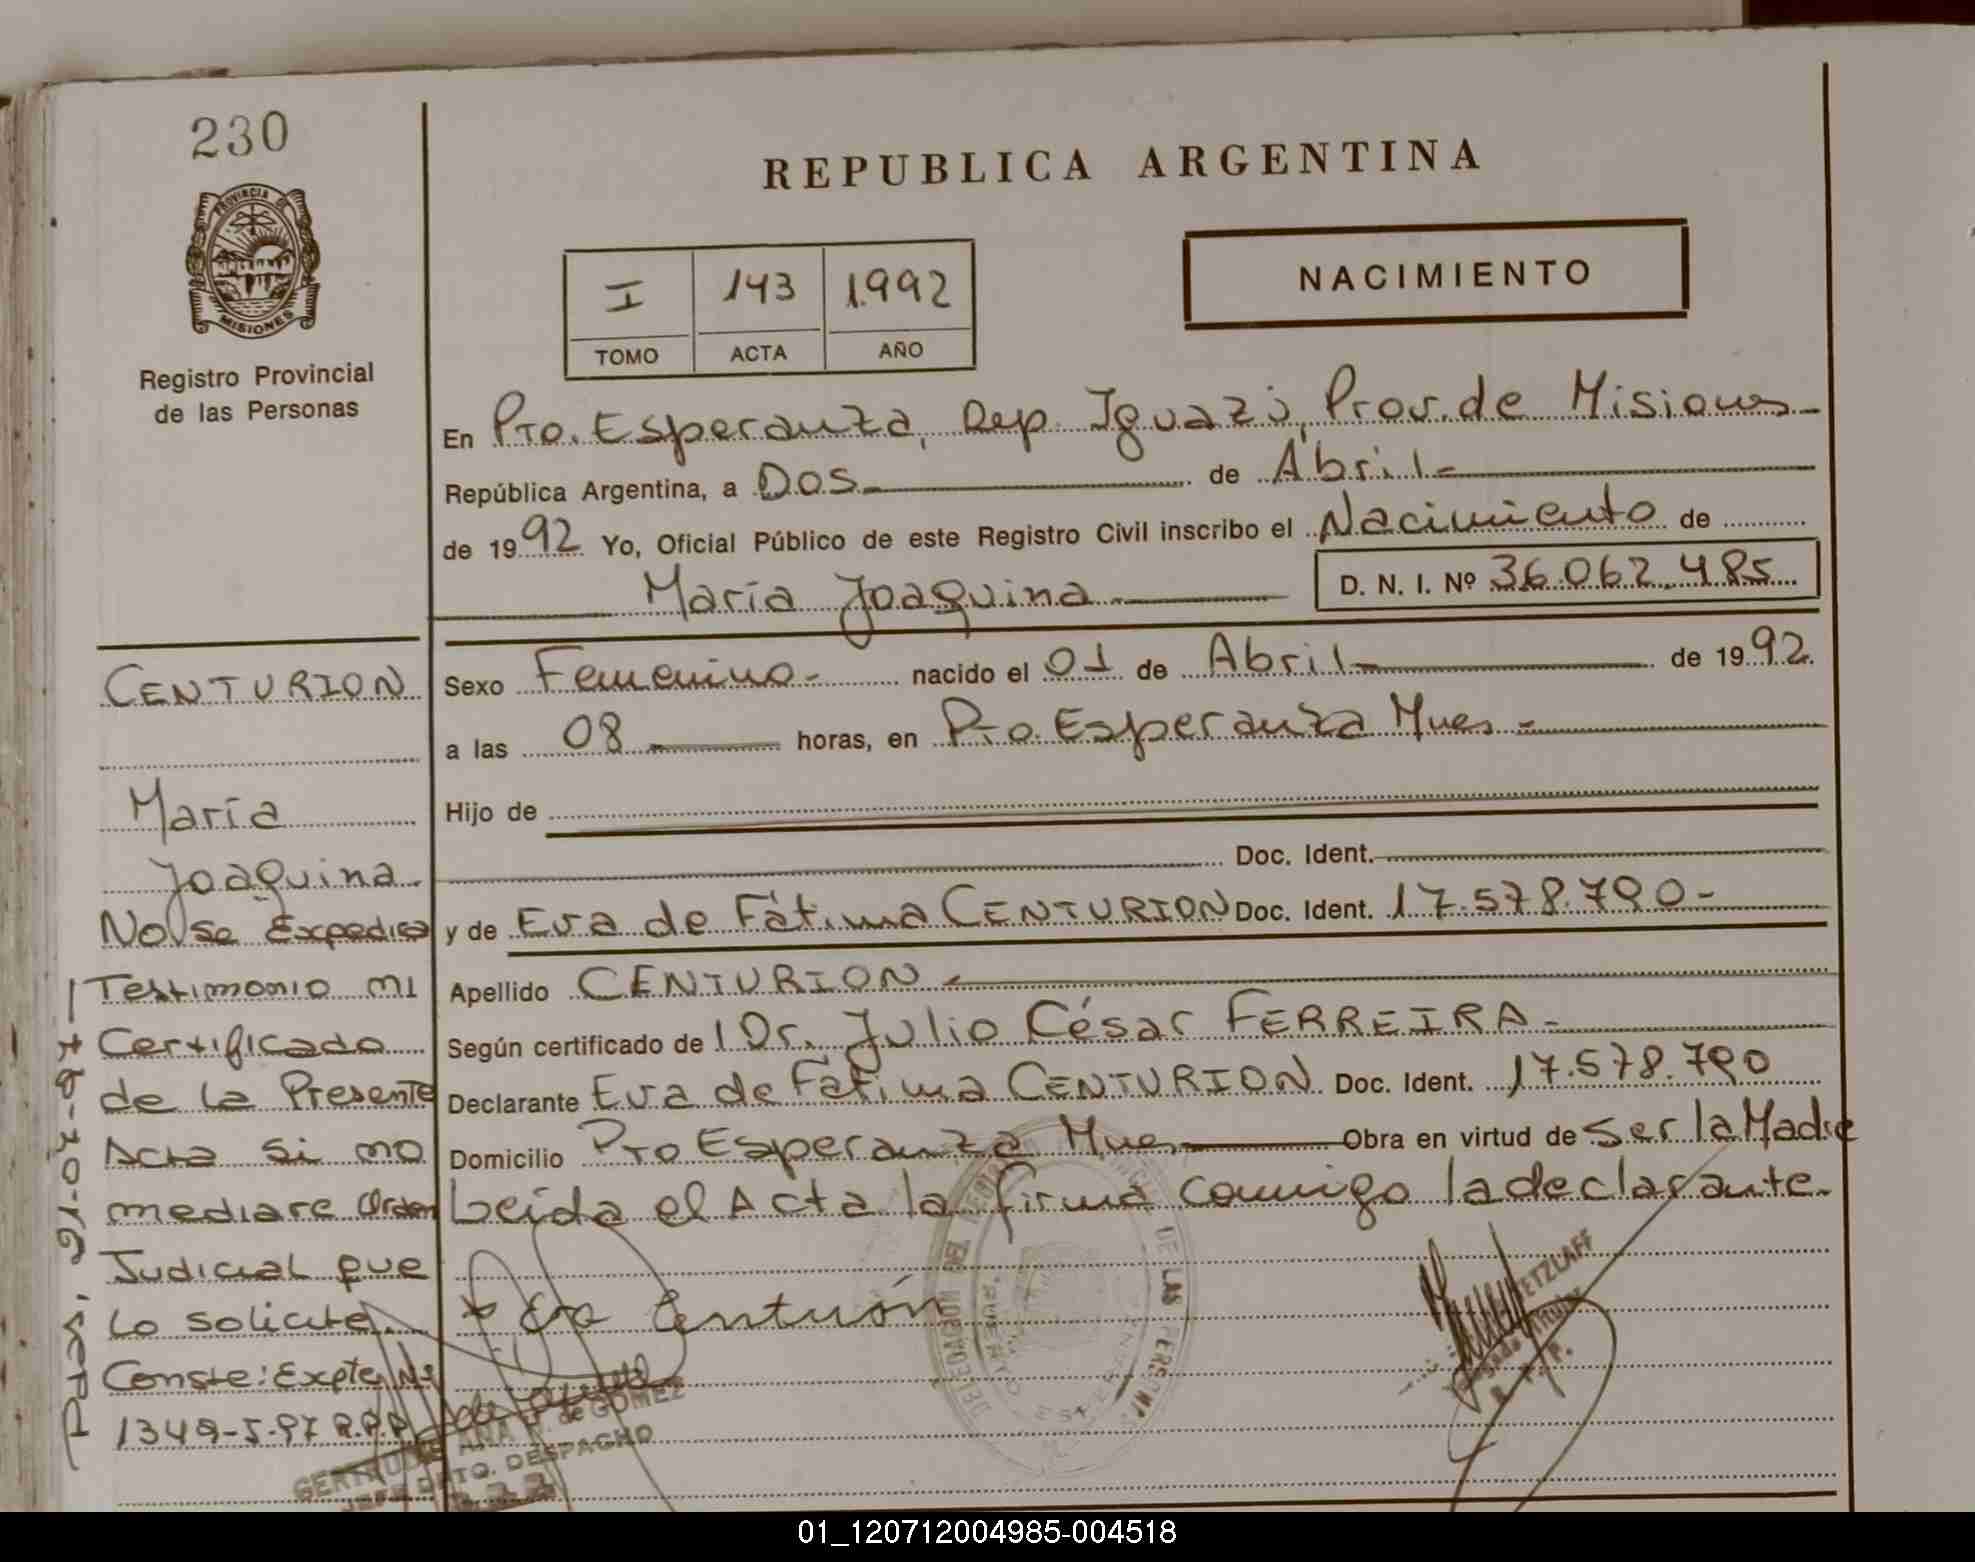 230
PROVINCIA DE
MISIONES
Registro Provincial
de las Personas
REPUBLICA ARGENTINA
I 143 1.992
TOMO ACTA AÑO
NACIMIENTO
En Pto. Esperanza, Dep. Iguazú, Prov. de Misiones
República Argentina, a Dos de Abril
de 1992 Yo, Oficial Público de este Registro Civil inscribo el Nacimiento de
María Joaquina D. N. I. Nº 36.062.485
Sexo Femenino nacido el 01 de Abril de 1992.
a las 08 horas, en Pto. Esperanza Mnes
Hijo de
Doc. Ident.
y de Eva de Fátima CENTURION Doc. Ident. 17.578.790-
Apellido CENTURION
Según certificado de l Dr. Julio César FERREIRA-
Declarante Eva de Fátima CENTURION Doc. Ident. 17.578.790
Domicilio Pto Esperanza Mnes Obra en virtud de Ser la Madre
Leída el Acta la firma conmigo la declarante.
Eva Centurión
CENTURION
María
Joaquina
No se Expedirá
Testimonio ni
Certificado
de la Presente
Acta si no
mediare Orden
Judicial que
Lo solicite.
Conste: Expte Nº
1349-J-97 R.P.P.
de GOMEZ
JEFE DPTO. DESPACHO
DE LAS PERSONAS
01_120712004985-004518